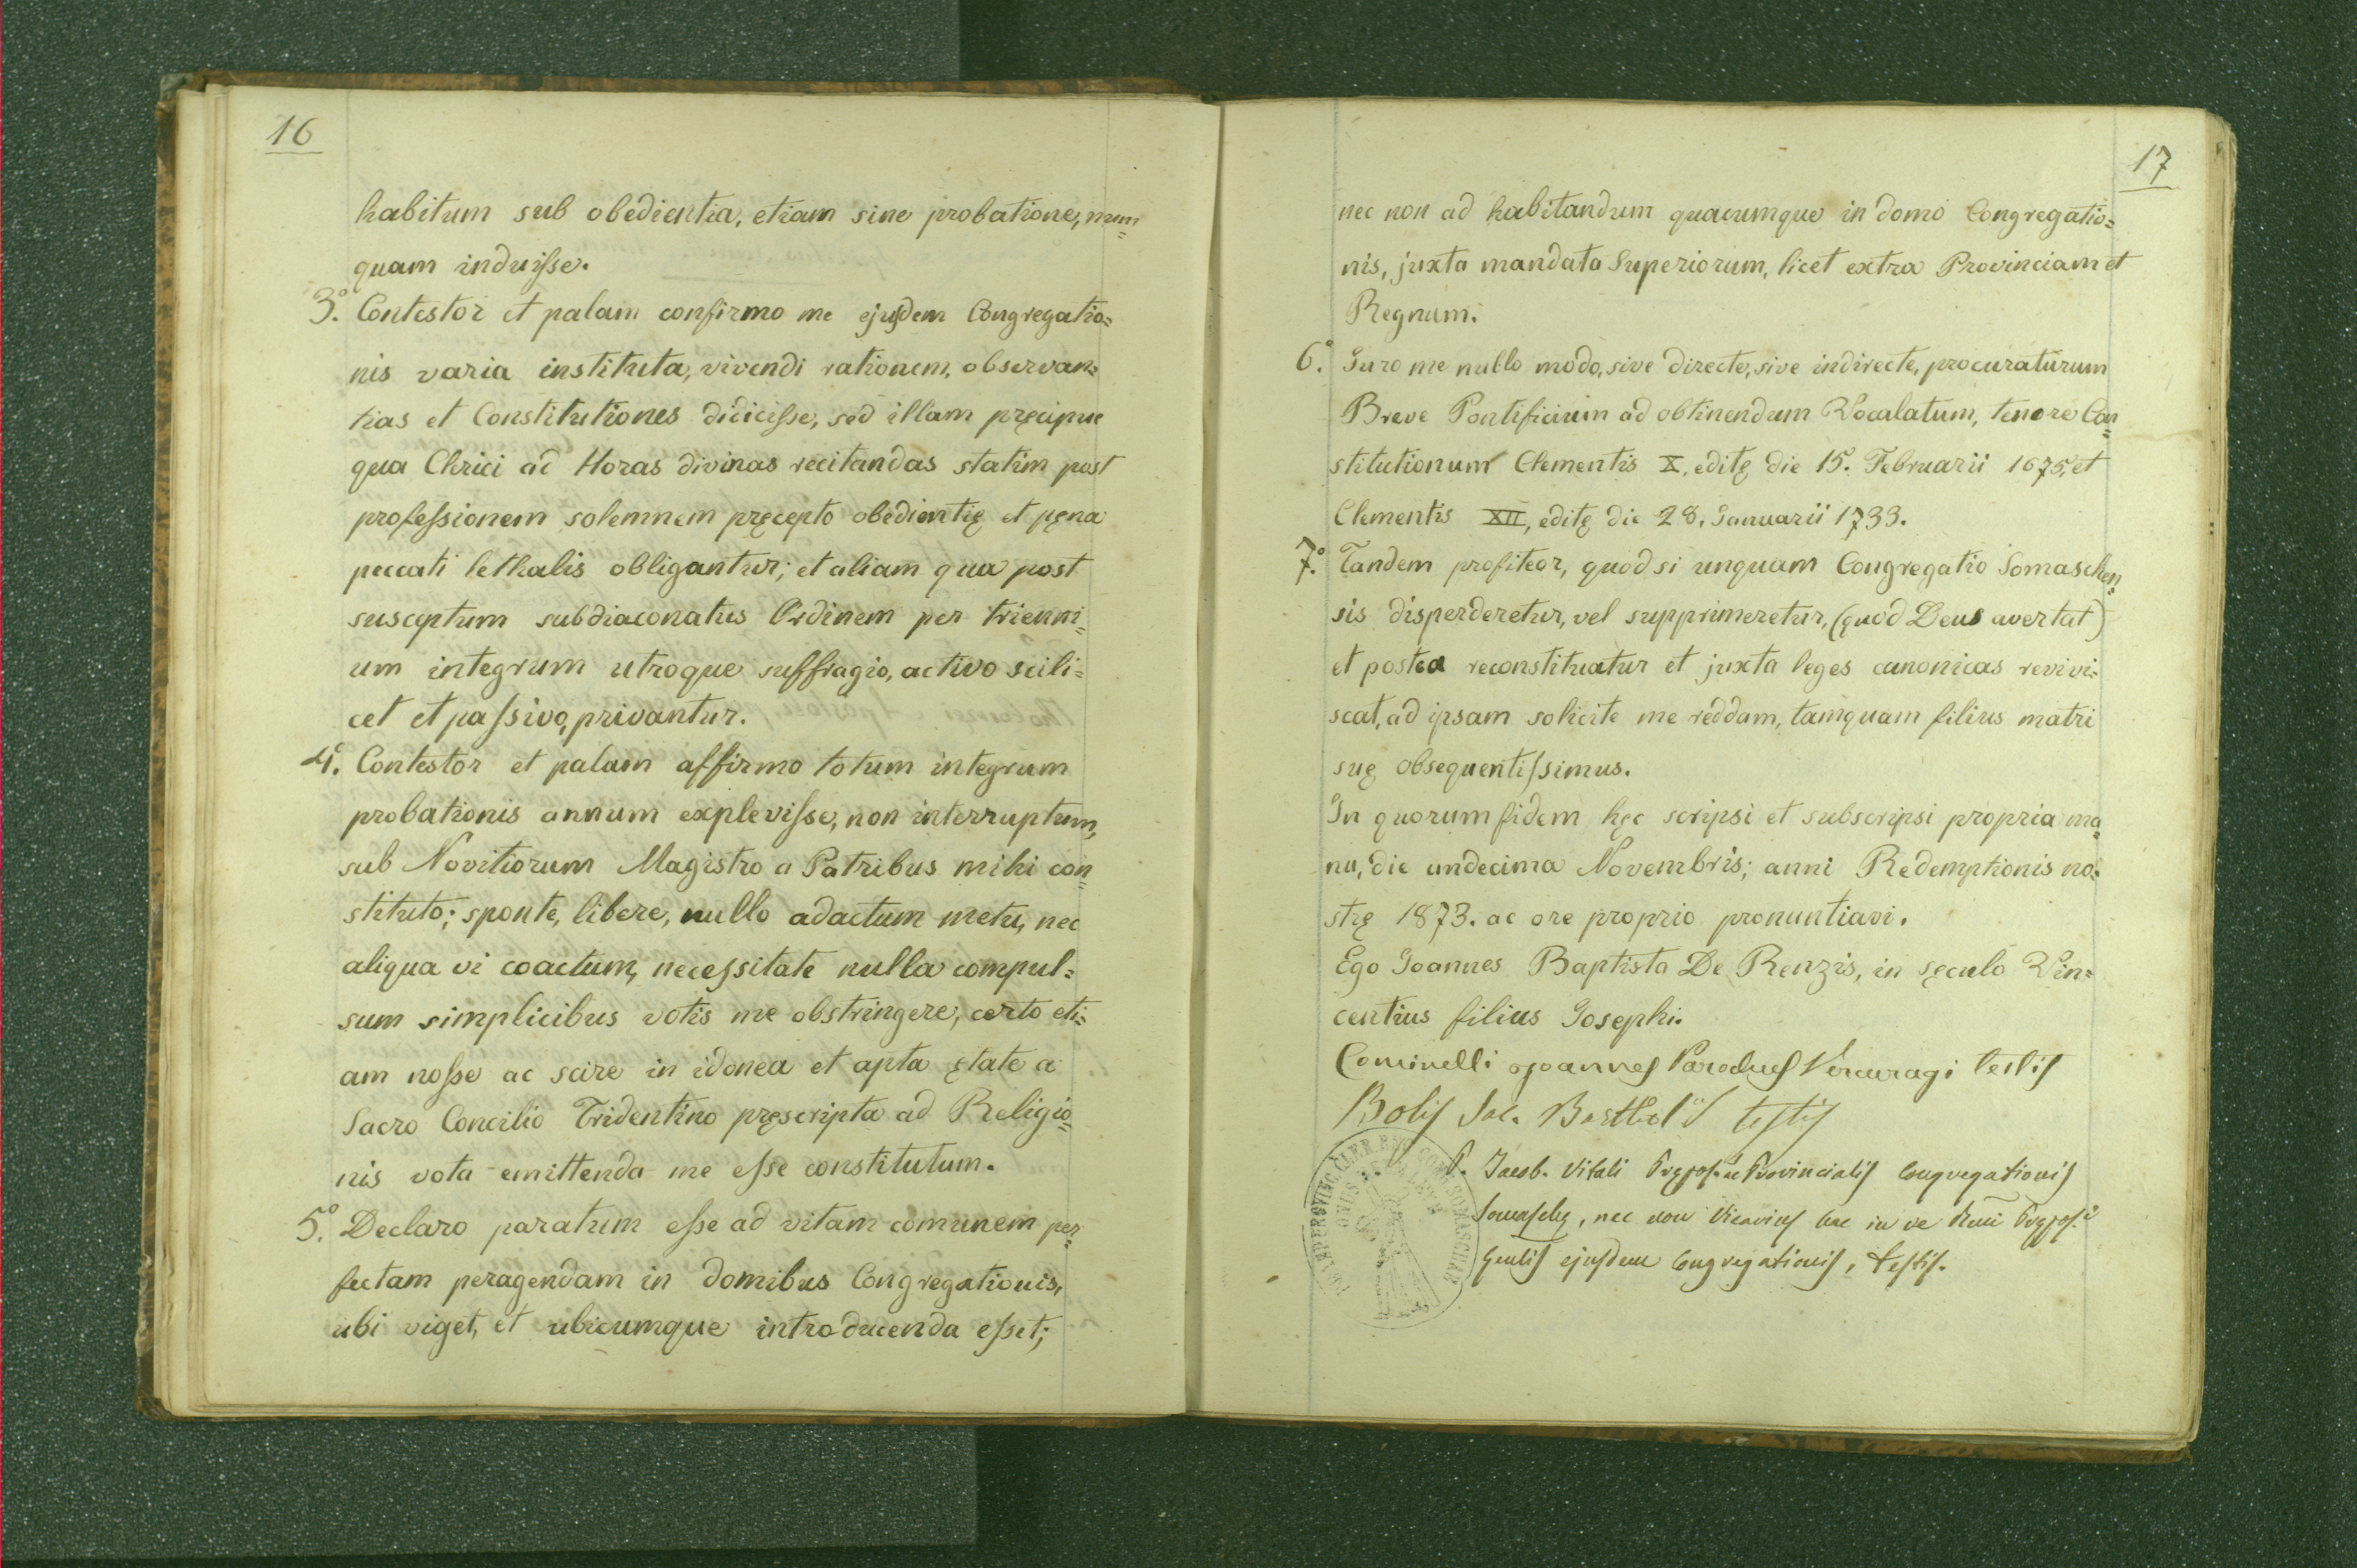 16
habitum sub obedientia, etiam sine probatione, nun=
quam induisse.
3.° Contestor et palam confirmo me ejusdem Congregatio=
nis varia instituta, vivendi rationem, observan=
tias et Constitutiones didicisse, sed illam pręcipue
qua Clerici ad Horas divinas recitandas statim post
professionem solemnem pręcepto obedientię et pęna
peccati lethalis obligantur; et aliam qua post
susceptum subdiaconatus Ordinem per trienni=
um integrum utroque suffragio, activo scili=
cet et passivo, privantur.
4.° Contestor et palam affirmo totum integrum
probationis annum explevisse, non interruptum,
sub Novitiorum Magistro a Patribus mihi con=
stituto; sponte, libere, nullo adactum metu, nec
aliqua vi coactum, necessitate nulla compul=
sum simplicibus votis me obstringere, certo eti=
am nosse ac scire in idonea et apta ętate a
Sacro Concilio Tridentino pręscripta ad Religio=
nis vota emittenda me esse constitutum.
5.° Declaro paratum esse ad vitam comunem per=
fectam peragendam in domibus Congregationis,
ubi viget, et ubicumque introducenda esset;
17
nec non ad habitandum quacumque in domo Congregatio=
nis, juxta mandata Superiorum, licet extra Provinciam et
Regnum.
6.° Juro me nullo modo, sive directe, sive indirecte, procuraturum
Breve Pontificium ad obtinendum Vocalatum, tenore Con=
stitutionum Clementis X, editę die 15. Februarii 1675, et
Clementis XII, editę die 28. Januarii 1733.
7.° Tandem profiteor, quod si unquam Congregatio Somaschen=
sis disperderetur, vel supprimeretur, (quod Deus avertat)
et postea reconstituatur et juxta leges canonicas revivi=
scat, ad ipsam solicite me reddam, tamquam filius matri
suę obsequentissimus.
In quorum fidem hęc scripsi et subscripsi propria ma=
nu, die undecima Novembris; anni Redemptionis no=
strę 1873. ac ore proprio pronuntiavi.
Ego Joannes Baptista De Renzis, in sęculo Vin=
centius filius Josephi.
Cominelli Joannes Parochus Vercuragi testis
Bolis Sac. testis
P. Jacob. Vitali Prępos. Provincialis Congregationis
Somaschę, nec non Vicarius hac in re Rmi Prępos.i
Gęnlis ejusdem Congregationis, testis.